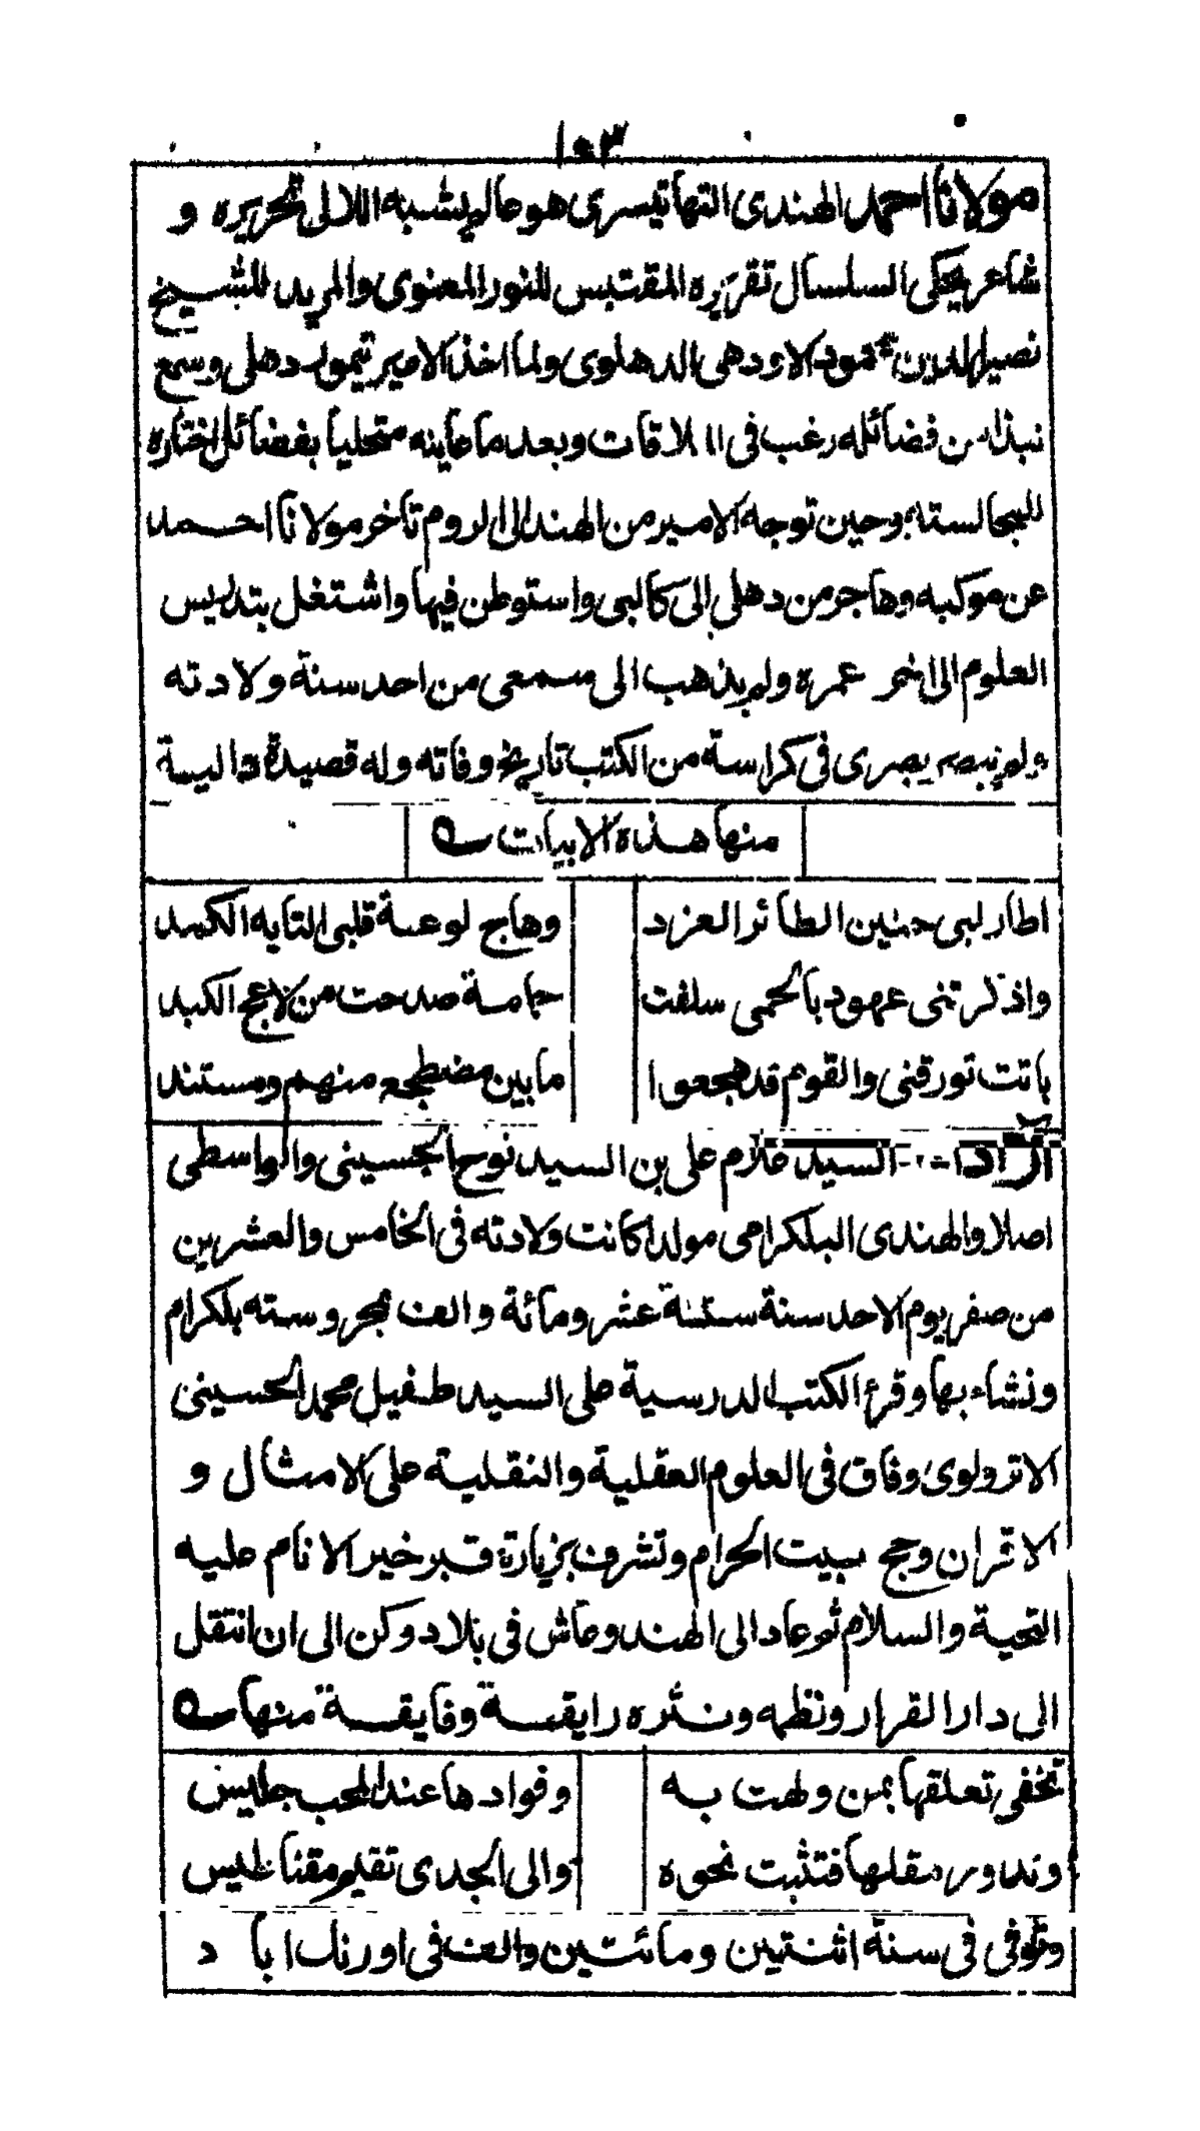 ١٥٣
مولانا احمد الهندى التهانيسرى هو عالم يشبه اللالى تحريره و
شاعر يحكى السلسال تقريره المقتبس للنور المعنوى والمريد للشيخ
نصير الدين محمود الاودهى الدهلوى ولما اخذ الامير تيمور دهلى وسمع
نبذا من فضائله رغب فى الملاقات وبعد ما عاينه متحليا بفضائل اختاره
للمجالسته وحين توجه الامير من الهند الى الروم تاخر مولانا احمد
عن موكبه وهاجر من دهلى الى كالبى واستوطن فيها واشتغل بتدريس
العلوم الى اخر عمره ولم يذهب الى مسمعى من احد سنة ولادته
ولم يبصر بصرى فى كراسة من الكتب تاريخ وفاته وله قصيدة دالية
منها هذه الابيات
اطار لبى حنين الطائر الغرد وهاج لوعة قلبى التايه الكمد
واذكرتنى عهود بالحمى سلفت حمامة صدحت من لاعج الكبد
باتت تورقنى والقوم قد هجعوا ما بين مضطجع منهم ومستند
آزاد السيد غلام على بن السيد نوح الحسينى والواسطى
اصلا والهندى البلكرامى مولدا كانت ولادته فى الخامس والعشرين
من صفر يوم الاحد سنة ستة عشر ومائة والف بمحروسته بلكرام
ونشاء بها وقرأ الكتب الدرسية على السيد طفيل محمد الحسينى
الاترولوى وفاق فى العلوم العقلية والنقلية على الامثال و
الاقران وحج ببيت الحرام وتشرف بزيارة قبر خير الانام عليه
التحية والسلام ثم عاد الى الهند وعاش فى بلاد دكن الى ان انتقل
الى دار القرار ونظمه ونثره رايقة وفايقة منها
تخفى تعلقها بمن ولهت به وفوادها عند المحب جليس
وتداور مقلها فتثبت نحوه والى الجدى تقيم مقناطيس
وتوفى فى سنة اثنتين ومائتين والف فى اورنك اباد